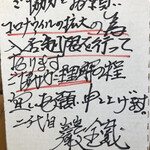 ご協力とお願い
コロナウイルスの拡大の為
入店制限を行って
おります
ご協力ご理解の程
宜しくお願い申し上げます
二代目